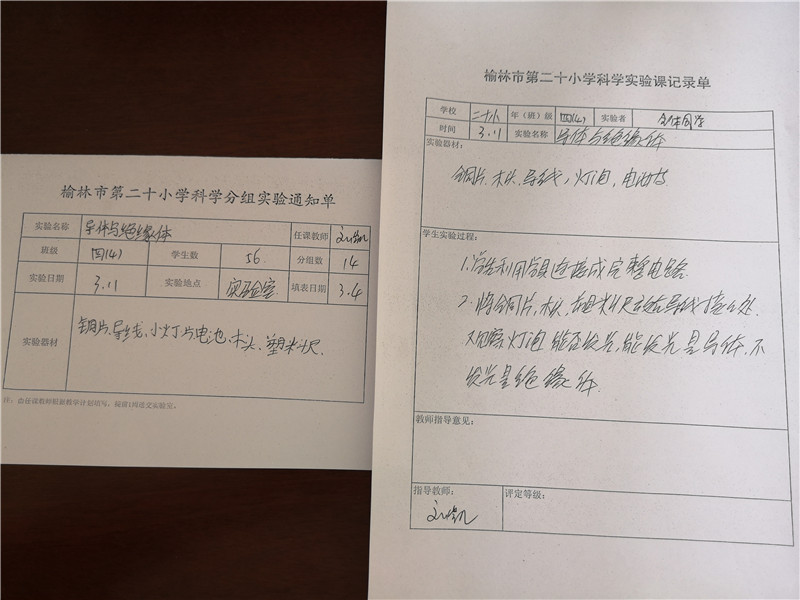 榆林市第二十小学科学分组实验通知单
实验名称 导体与绝缘体 任课教师
班级 四(4) 学生数 56 分组数 14
实验日期 3.11 实验地点 实验室 填表日期 3.4
实验器材 铜片、导线、小灯片、电池、木头、塑料尺.
榆林市第二十小学科学实验课记录单
学校 二十小 年（班）级 四(4) 实验者 全体同学
时间 3.11 实验名称 导体与绝缘体
实验器材:
铜片、木头、导线, 灯泡, 电池
学生实验过程:
1. 利用 连接成完整电路.
2. 将铜片, 木头, 塑料尺 导线接口处.
观察灯泡能否发光, 能发光是导体, 不
发光是绝缘体.
教师指导意见:
指导教师:
评定等级: